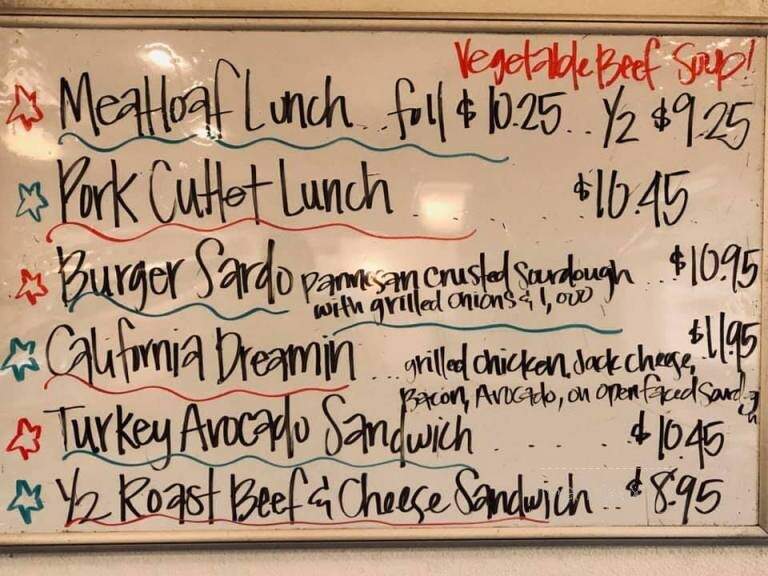 Vegetable Beef Soup!
Meatloaf Lunch...full $10.25...1/2 $9.25
Pork Cutlet Lunch...... $10.45
Burger Sardo parmesan crusted Sourdough... $10.95
with grilled onions & 1,000
California Dreamin... grilled chicken, Jack cheese, $11.95
Bacon, Avocado, on open faced Sourdough
Turkey Avocado Sandwich...... $10.45
1/2 Roast Beef & Cheese Sandwich... $8.95